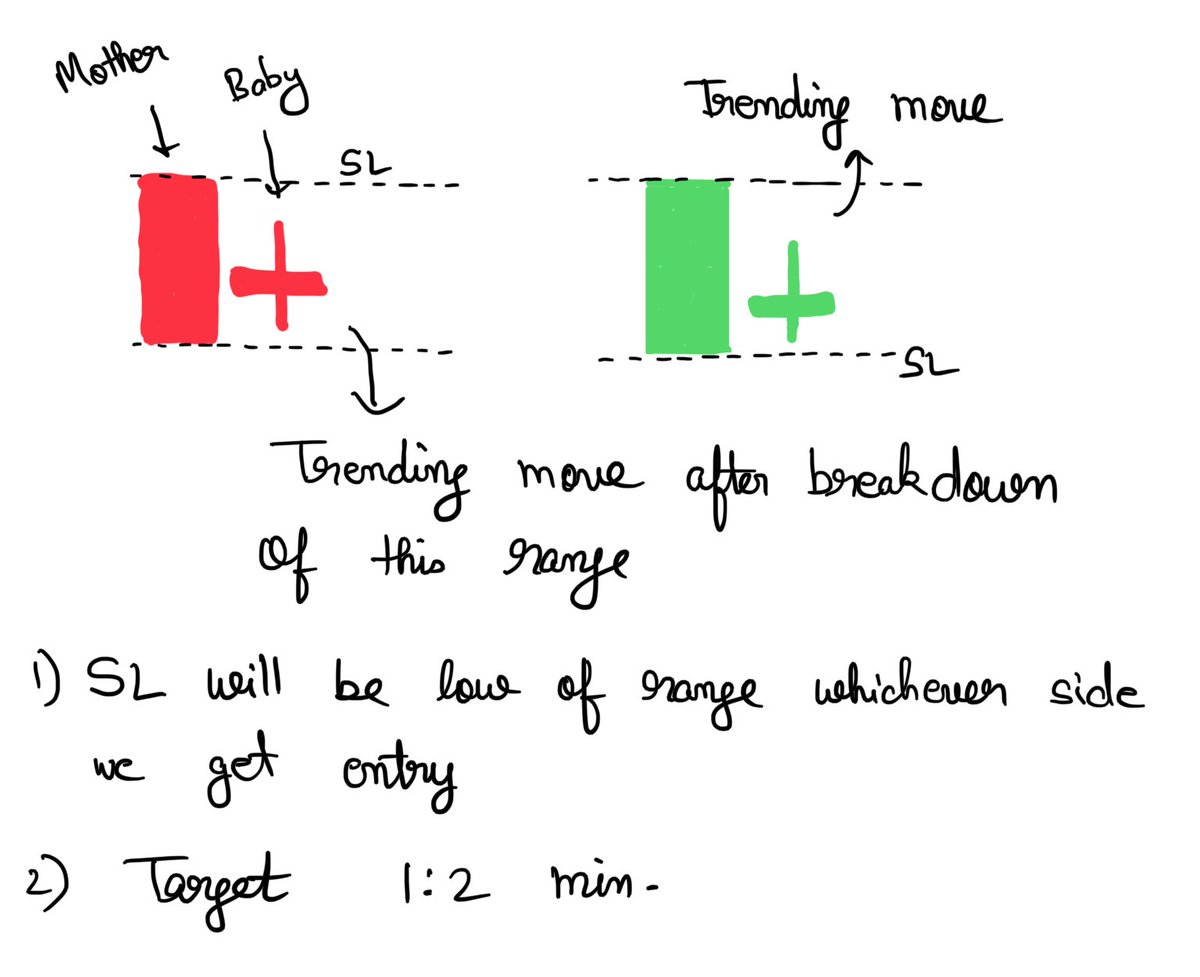 Mother
Baby
SL
Trending move
SL
Trending move after breakdown
of this range
1) SL will be low of range whichever side
we get entry
2) Target 1:2 min.